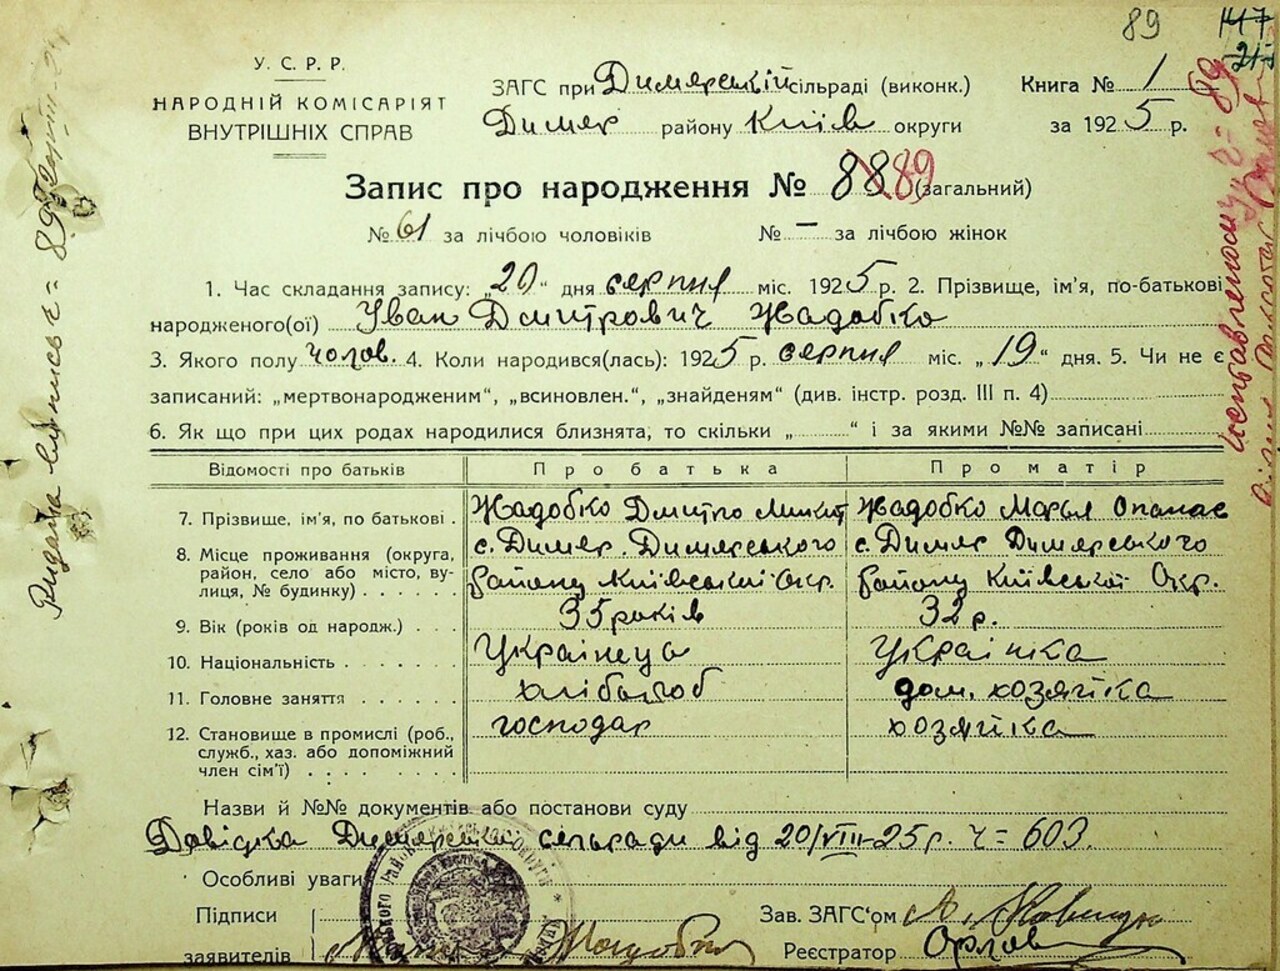 89
147
У. С. Р. Р.
НАРОДНІЙ КОМІСАРІЯТ
ВНУТРІШНІХ СПРАВ
ЗАГС при Димерській сільраді (виконк.)
Димер району Київ округи
Книга № 1
за 1925 р.
Запис про народження № 88 89 (загальний)
№ 61 за лічбою чоловіків № — за лічбою жінок
1. Час складання запису: „20“ дня серпня міс. 1925 р. 2. Прізвище, ім'я, по-батькові
народженого(ої) Іван Дмитрович Жадобко
3. Якого полу чолов. 4. Коли народився(лась): 1925 р. серпня міс. „19“ дня. 5. Чи не є
записаний: „мертвонародженим“, „всиновлен.“, „знайденям“ (див. інстр. розд. III п. 4)
6. Як що при цих родах народилися близнята, то скільки „ “ і за якими №№ записані
Відомості про батьків Про батька Про матір
7. Прізвище, ім'я, по батькові . Жадобко Дмитро Микит Жадобко Марья Опанас
8. Місце проживання (округа, с. Димер. Димерського с. Димер Димерського
район, село або місто, ву- району Київської Окр. району Київської Окр.
лиця, № будинку) . . . . . .
9. Вік (років од народж.) . . . 35 років 32 р.
10. Національність . . . . . . Українець Українка
11. Головне заняття . . . . . . хлібороб дом. хозяйка
12. Становище в промислі (роб., господар хозяйка
служб., хаз. або допоміжний
член сім'ї) . . . . . . .
Назви й №№ документів або постанови суду
Довідка Димерської сільради від 20/VIII-25 р. ч = 603.
Особливі уваги
Підписи
заявителів
Зав. ЗАГС'ом
Реєстратор Орлов